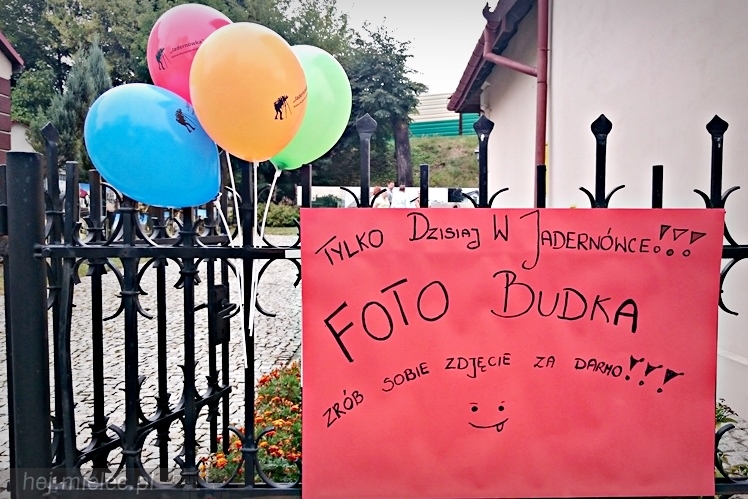 "Jadernówka"
TYLKO DZISIAJ W JADERNÓWCE!!!
FOTO BUDKA
ZRÓB SOBIE ZDJĘCIE ZA DARMO!!!
hej.mielec.pl